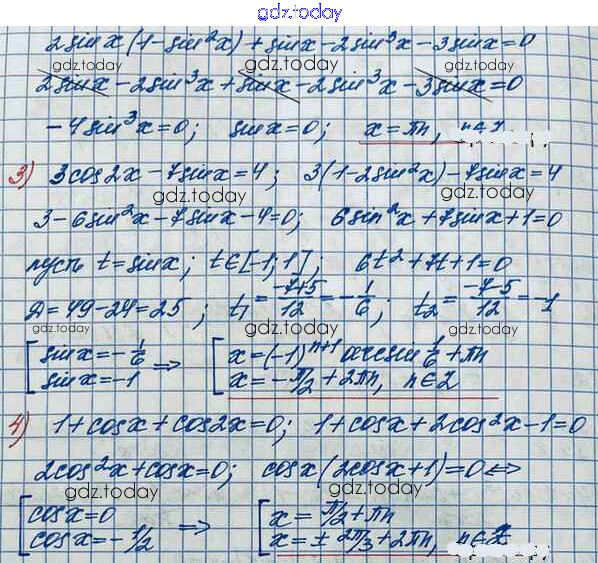 gdz.today
2sinx(1-sin²x)+sinx-2sin³x-3sinx=0
gdz.today gdz.today
2sinx-2sin³x+sinx-2sin³x-3sinx=0
-4sin³x=0; sinx=0; x=πn, n∈Z
3) 3cos2x-7sinx=4; 3(1-2sin²x)-7sinx=4
gdz.today gdz.today
3-6sin²x-7sinx-4=0; 6sin²x+7sinx+1=0
пусть t=sinx; t∈[-1;1]; 6t²+7t+1=0
Д=49-24=25; t₁=(-7+5)/12=-1/6; t₂=(-7-5)/12=-1
gdz.today gdz.today gdz.today
[sinx=-1/6 ⇒ [x=(-1)ⁿ⁺¹arcsin 1/6+πn
sinx=-1 x=-π/2+2πn, n∈Z
4) 1+cosx+cos2x=0; 1+cosx+2cos²x-1=0
gdz.today gdz.today
2cos²x+cosx=0; cosx(2cosx+1)=0⇔
gdz.today gdz.today
[cosx=0 ⇒ [x=π/2+πn
cosx=-1/2 x=±2π/3+2πn, n∈Z